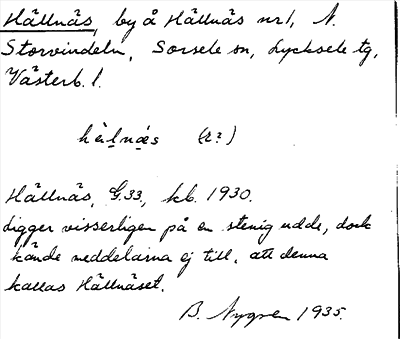 Hällnäs, by å Hällnäs nr 1, N.
Storvindeln, Sorsele sn, Lycksele tg,
Västerb. l.
hèlnǽs (r?)
Hällnäs, G.33, kb. 1930.
Ligger visserligen på en stenig udde, dock
kände meddelarna ej till, att denna
kallas Hällnäset.
B. Nygren 1935.